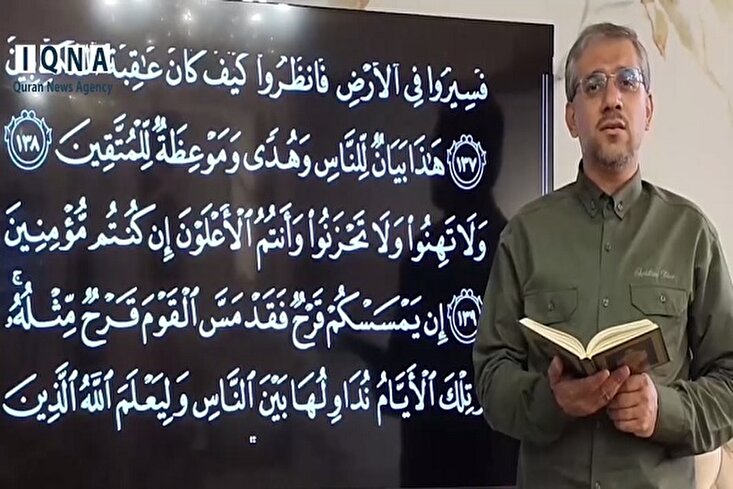 IQNA
Quran News Agency
فَسِيرُوا۟ فِى ٱلْأَرْضِ فَٱنظُرُوا۟ كَيْفَ كَانَ عَـٰقِبَةُ
﴿١٣٧﴾ هَـٰذَا بَيَانٌ لِّلنَّاسِ وَهُدًى وَمَوْعِظَةٌ لِّلْمُتَّقِينَ ﴿١٣٨﴾
وَلَا تَهِنُوا۟ وَلَا تَحْزَنُوا۟ وَأَنتُمُ ٱلْأَعْلَوْنَ إِن كُنتُم مُّؤْمِنِينَ
﴿١٣٩﴾ إِن يَمْسَسْكُمْ قَرْحٌ فَقَدْ مَسَّ ٱلْقَوْمَ قَرْحٌ مِّثْلُهُۥۚ
وَتِلْكَ ٱلْأَيَّامُ نُدَاوِلُهَا بَيْنَ ٱلنَّاسِ وَلِيَعْلَمَ ٱللَّهُ ٱلَّذِينَ